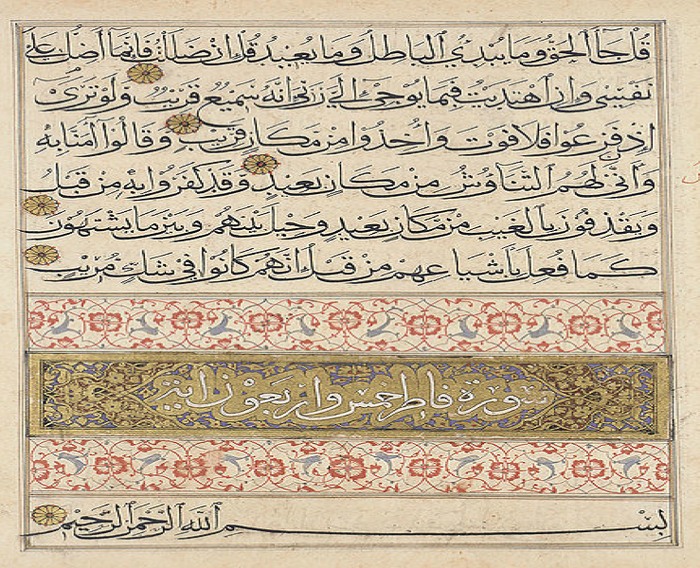 قُلْ جَآءَ الْحَقُّ وَمَا يُبْدِئُ الْبَاطِلُ وَمَا يُعِيدُ قُلْ اِنْ ضَلَلْتُ فَاِنَّمَآ اَضِلُّ عَلٰى
نَفْسِي وَاِنِ اهْتَدَيْتُ فَبِمَا يُوحِيٓ اِلَيَّ رَبِّيٓ اِنَّهُ سَمِيعٌ قَرِيبٌ وَلَوْ تَرٰىٓ
اِذْ فَزِعُوا فَلَا فَوْتَ وَاُخِذُوا مِنْ مَكَانٍ قَرِيبٍ وَقَالُوٓا اٰمَنَّا بِهِ
وَاَنّٰى لَهُمُ التَّنَاوُشُ مِنْ مَكَانٍ بَعِيدٍ وَقَدْ كَفَرُوا بِهِ مِنْ قَبْلُ
وَيَقْذِفُونَ بِالْغَيْبِ مِنْ مَكَانٍ بَعِيدٍ وَحِيلَ بَيْنَهُمْ وَبَيْنَ مَا يَشْتَهُونَ
كَمَا فُعِلَ بِاَشْيَاعِهِمْ مِنْ قَبْلُ اِنَّهُمْ كَانُوا فِي شَكٍّ مُرِيبٍ
سورة فاطر خمس واربعون اية
بِسْمِ اللّٰهِ الرَّحْمٰنِ الرَّحِيمِ